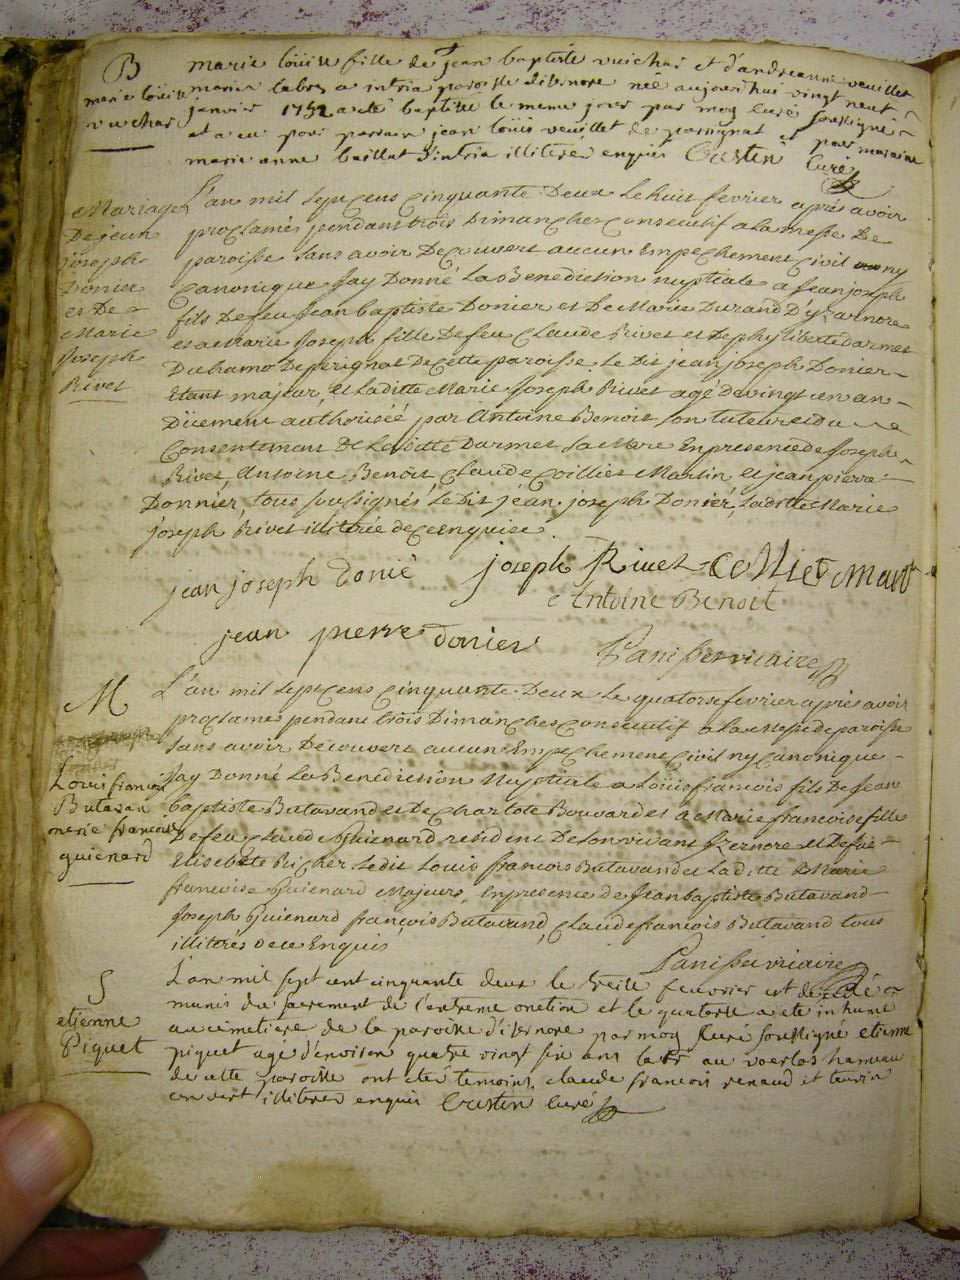 B
marie louise
vuichar
marie loüise fille de jean baptiste vuichar et d'andreanne veuillet
marie labrz a intria paroisse disernore née aujourd'hui vingt neuf
janvier 1752 a eté baptisée le meme jour par moy curé soussigné
et a eu pour parrain jean loüis veuillet de perignat et par maraine
marie anne baillat d'intria illiteres enquis Crestin Curé
Mariage
De jean
joseph
Donier
et De
Marie
Joseph
Rivet
L'an mil sept cens cinquante Deux Le huit fevrier apres avoir
proclamés pendant trois Dimanches consecutif a La messe De
paroisse sans avoir Decouvert aucun Empechement civil ny
canonique Jay Donné La Benediction nuptiale a Jean joseph
fils De feu Jean baptiste Donier et De Marie Durand D'yzarnore
et a Marie Joseph fille De feu Claude Rivet et De phyliberte Darmet
Du hamo De perignat De cette paroisse Le Dit jean joseph Donier
Etant majeur, Et Laditte Marie Joseph Rivet agé De vingt un an
Düement authorisée par Antoine Benoit son tuteur et du
Consentement De Laditte Darmet sa Mere En presence de Joseph
Rivet, Antoine Benoit, Claude Collier Martin, et jean pierre
Donnier, tous soussignés Le Dit jean joseph Donier, Laditte Marie
joseph Rivet illiterée de ce enquise.
jean joseph Donié joseph Rivet Collier Mart
Antoine Benoit
jean pierre donier Panisset vicaire
M
Louis francois
Butavan
merie francoise
guienard
L'an mil sept cens cinquante Deux Le quatorse fevrier apres avoir
proclamés pendant trois Dimanches consecutif a La messe de paroisse
sans avoir Decouvert aucun Empechement civil ny canonique
Jay Donné La Benediction Nuptiale a Loüis francois fils De Jean
baptiste Butavand et De Charlote Bouvard et a Marie francoise fille
De feu Claude Guienard resident De son vivant Izernore et De feüe
Elisebete Richer Ledit Louis francois Butavand et La ditte Marie
francoise Guienard Majeurs, En presence de Jean baptiste Butavand
Joseph Guienard francois Butavand, Claude francois Butavand tous
illiterés De ce Enquis Panisset vicaire
S
etienne
Piquet
L'an mil sept cent cinquante deux le treise fevrier est decedé
munis du sacrement de l'extreme onction et le quatorse a eté inhumé
au cimetiere de la paroisse d'isernore par moy Curé soussigné etienne
piquet agé d'environ quatre vingt six ans au voerlas hameau
de cette paroisse ont eté temoins claude francois renaud et
illiteres enquis Crestin Curé